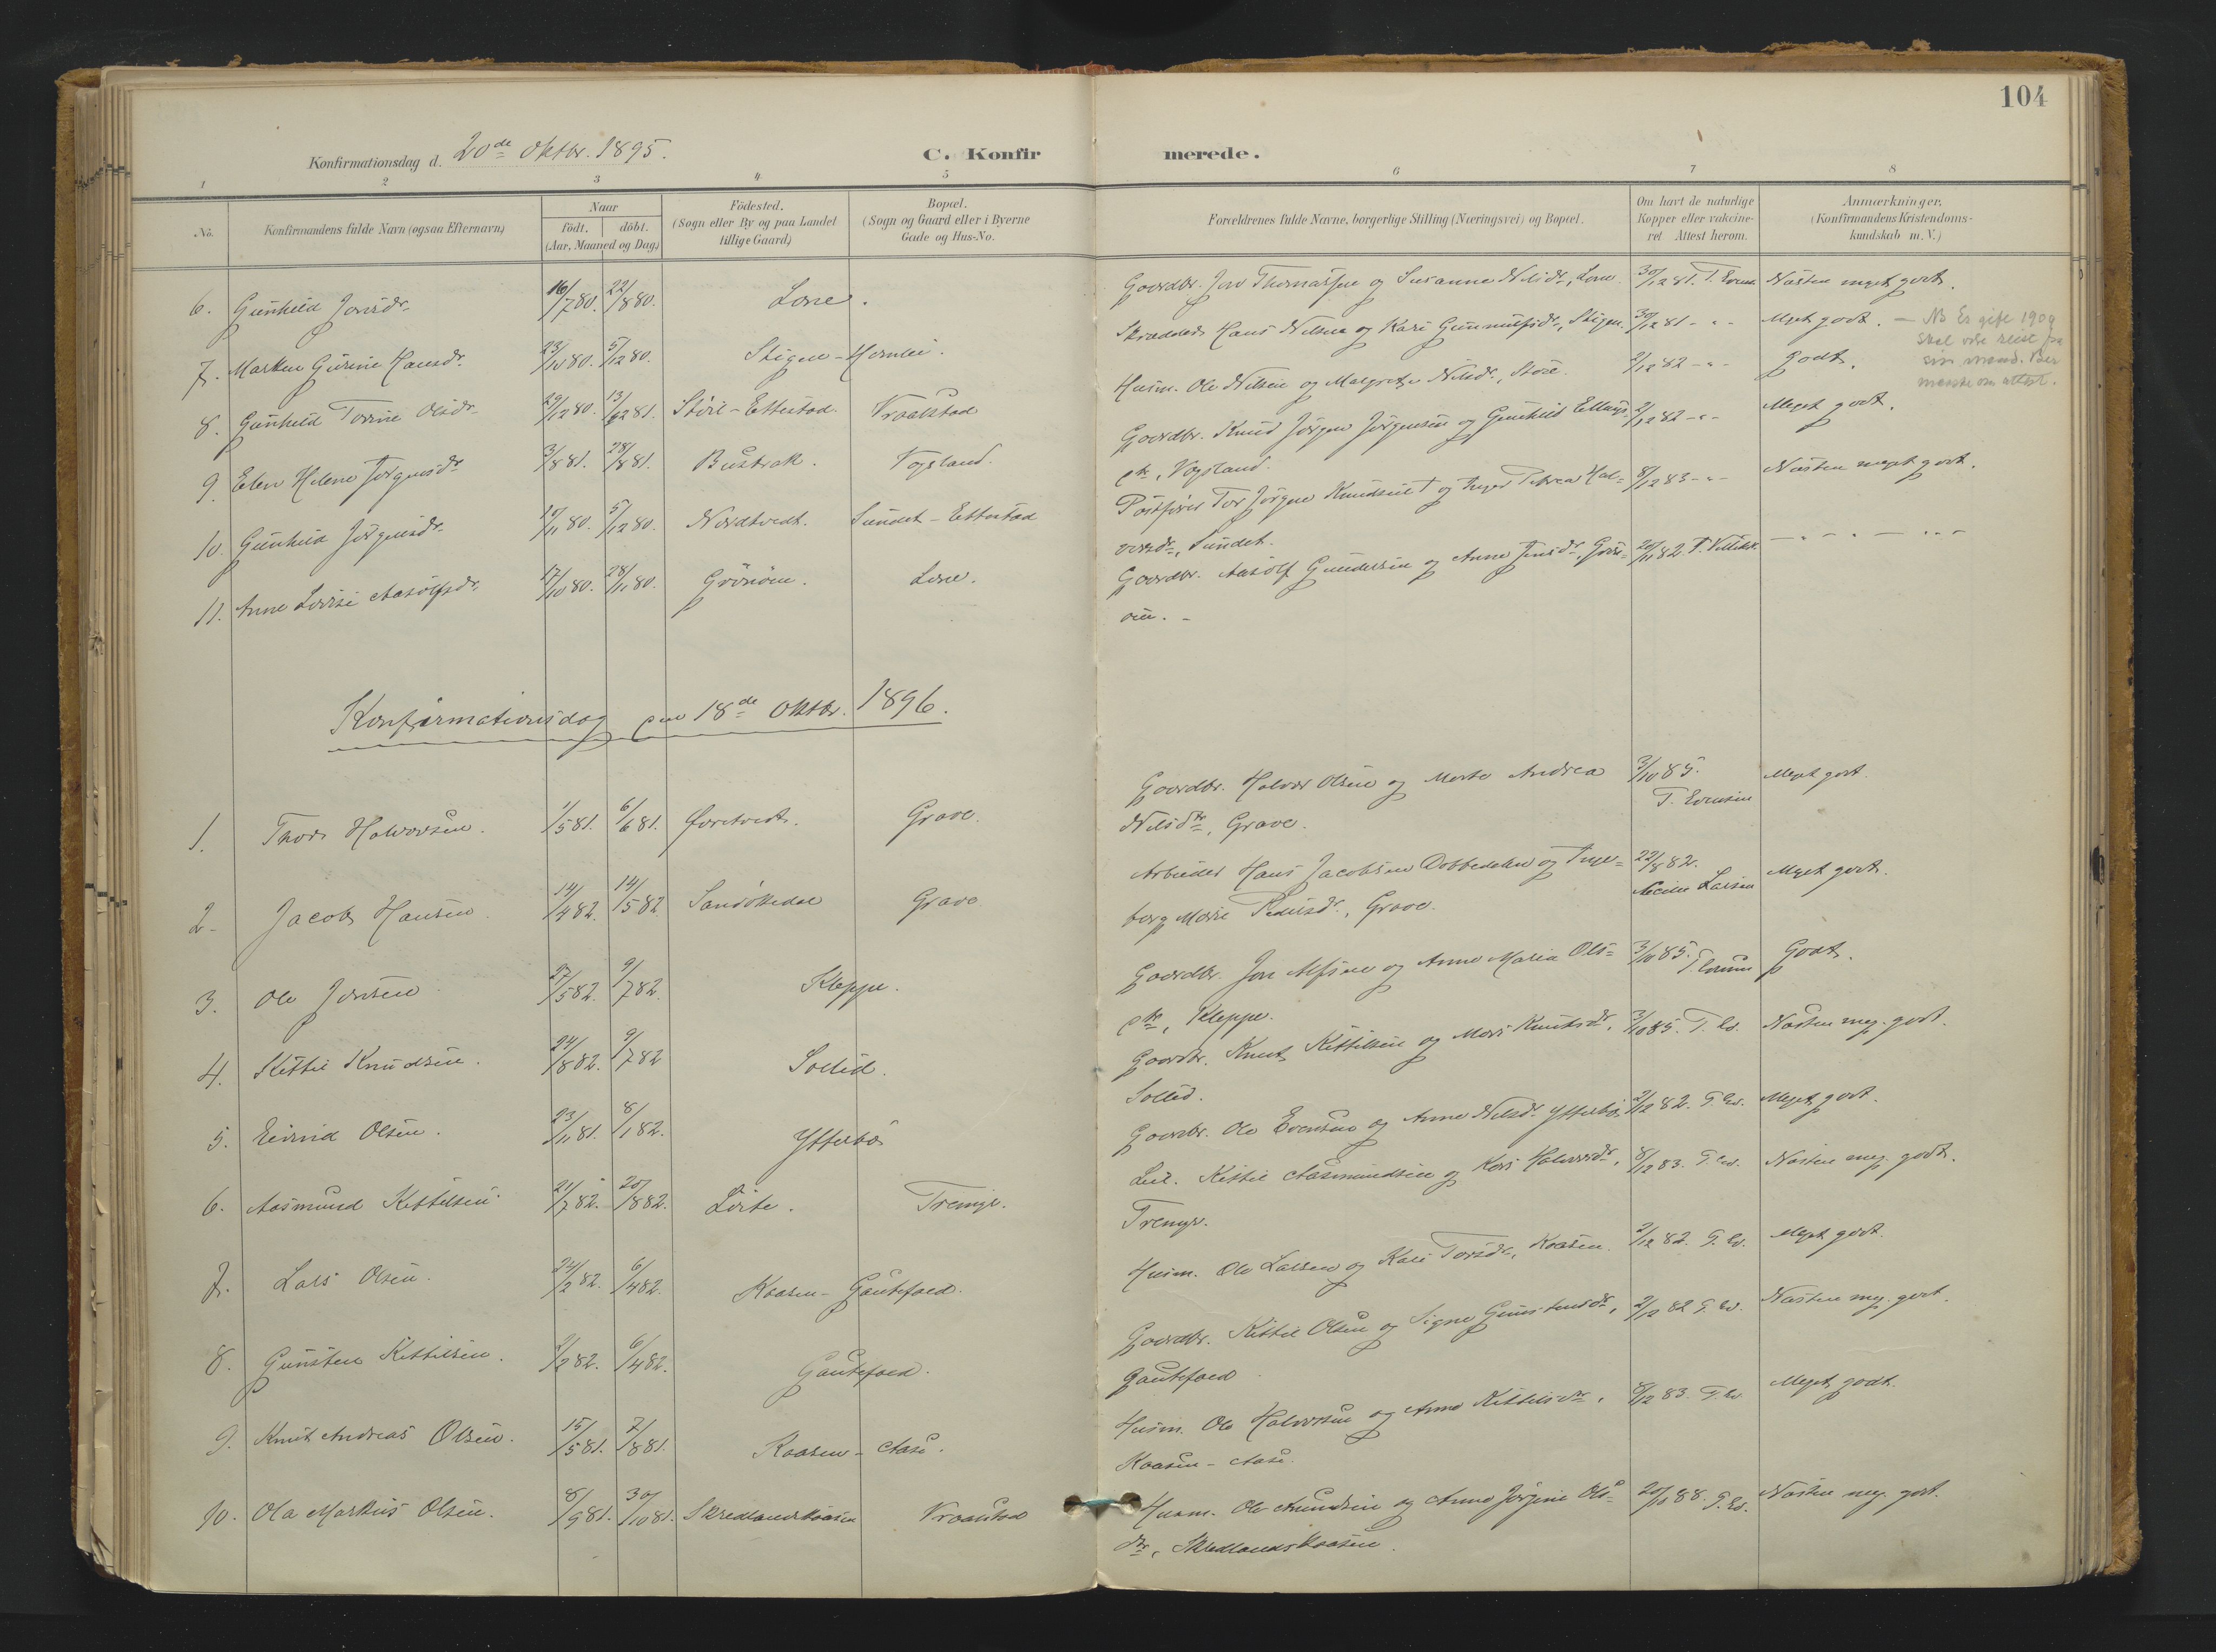 104
Konfirmationsdag d. 20de Oktbr. 1895.
C. Konfirmerede.
1 2 3 4 5 6 7 8
No. Konfirmandens fulde Navn (ogsaa Efternavn) Naar födt. döbt. (Aar, Maaned og Dag) Födested. (Sogn eller By og paa Landet tillige Gaard) Bopæl. (Sogn og Gaard eller i Byerne Gade og Hus-No. Forældrenes fulde Navne, borgerlige Stilling (Næringsvei) og Bopæl. Om havt de naturlige Kopper eller vaksineret Attest herom. Anmærkninger. (Konfirmandens Kristendomskundskab m. V.)
6. Gunhild Jonsdr. 16/7 80. 22/8 80. Lone. Gaardbr. Jon Thomassen og Susanne Nilsdr., Lone. 30/12 81. T. Evens. Næsten meget godt.
7. Marken Gurine Hansdr. 23/10 80. 5/12 80. Stigen - Skrædder Hans Nilsen og Kari Gunnulfsdr., Stigen. 30/12 81 - " - Meget godt. - Nb Es gift 1909
skal reise
sin mand.
om attest.
8. Gunhild Torine Olsdr. 29/12 80. 13/2 81. Støil - Ettestad Vraalstad Husm. Ole Nilsen og Margrethe Nilsdr., 2/12 82 - " - Godt.
9. Elen Helene Jørgensdr. 3/8 81. 28/8 81. Busrak. Vogsland. Gaardbr. Knud Jørgen Jørgensen og Gunhild Ellings-
dtr., Vogsland. 2/12 82 - " - Meget godt.
10. Gunhild Jørgensdr. 10/11 80. 5/12 80. Nordtvedt. Sundet - Ettestad Postfører Tor Jørgen Knudsen † og Inger Petrea Hal-
vorsdr., Sundet. 8/12 83 - " - Næsten meget godt.
11. Anne Lovise Aasolfsdr. 17/10 80. 28/11 80. Lone. Gaardbr. Aasolf Gundersen og Anne Jensdr.,
20/11 82. - " - - " -
Konfirmationsdag den 18de Oktbr. 1896.
1. Thor Halvorsen. 1/5 81. 6/6 81. Grave. Gaardbr. Halvor Olsen og Marte Andrea
Nilsdtr., Grave. 3/10 85. T. Evensen Meget godt.
2. Jacob Hansen. 14/4 82. 14/5 82. Sandøkedal Grave Arbeider Hans Jacobsen Dobbedalen og Inge-
borg Marie Pedersdr., Grave. 22/8 82. Larsen Meget godt.
3. Ole Jonsen. 27/5 82. 9/7 82. Kleppe. Gaardbr. Jon Alfsen og Anne Maria Ols-
dtr., Kleppe. 3/10 85. T Evensen Godt.
4. Kittil Knudsen. 24/6 82. 9/7 82 Sollid. Gaardbr. Knut Kittilsen og Mari Knutsdr.,
Sollid. 3/10 85. T. Ev. Næsten meg. godt.
5. Eivind Olsen. 23/11 81. 8/1 82. Ytterbø Gaardbr. Ole Evensen og Anne Nilsdr. Ytterbø. 2/12 82. T. Ev. Meget godt.
6. Aasmund Kittilsen. 21/7 82. 20/8 82. Lørte. Tremyr. Leil. Kittil Aasmundsen og Kari Halvorsdr.,
Tremyr. 8/12 83. T. Ev. Næsten meg. godt.
7. Lars Olsen. 24/2 82. 6/4 82. Kaasen - Gautefald. Husm. Ole Larsen og Kari Torsdr., Kaasen. 2/12 82. T. Ev. Meget godt.
8. Gunsten Kittilsen. 2/2 82. 6/4 82. Gautefald. Gaardbr. Kittil Olsen og Signe Gunstensdr.,
Gautefald 2/12 82 T. Ev. Næsten meg. godt.
9. Knut Andreas Olsen. 15/5 81. 7/8 81. Kaasen - Aase. Husm. Ole Halvorsen og Anne Kittilsdtr.,
Kaasen - Aase. 8/12 83. T. Ev Meget godt.
10. Ola Markus Olsen. 8/9 81. 30/10 81. Skredlandskaasen Vraalstad Husm. Ole Amundsen og Anne Jørgine Ols-
dtr., Skredlandskaasen. 20/10 88. T. Ev. Næsten meg. godt.